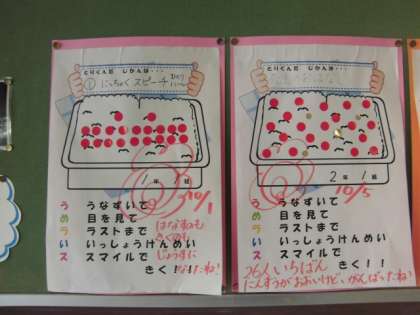 とりくんだ しかんは・・・
① にっちょく スピーチ
1年 1組
10/1
うなずいて
目を見て
ラストまで
いっしょうけんめい
スマイルで
きく！！
う
め
ら
い
ス
はなすのも
きくのも
じょうずに
なったね!
とりくんだ しかんは・・・
2年 1組
10/5
うなずいて
目を見て
ラストまで
いっしょうけんめい
スマイルで
きく！！
う
め
ラ
い
ス
26人 いちばん
にんずうがおおいけど、がんばったね!